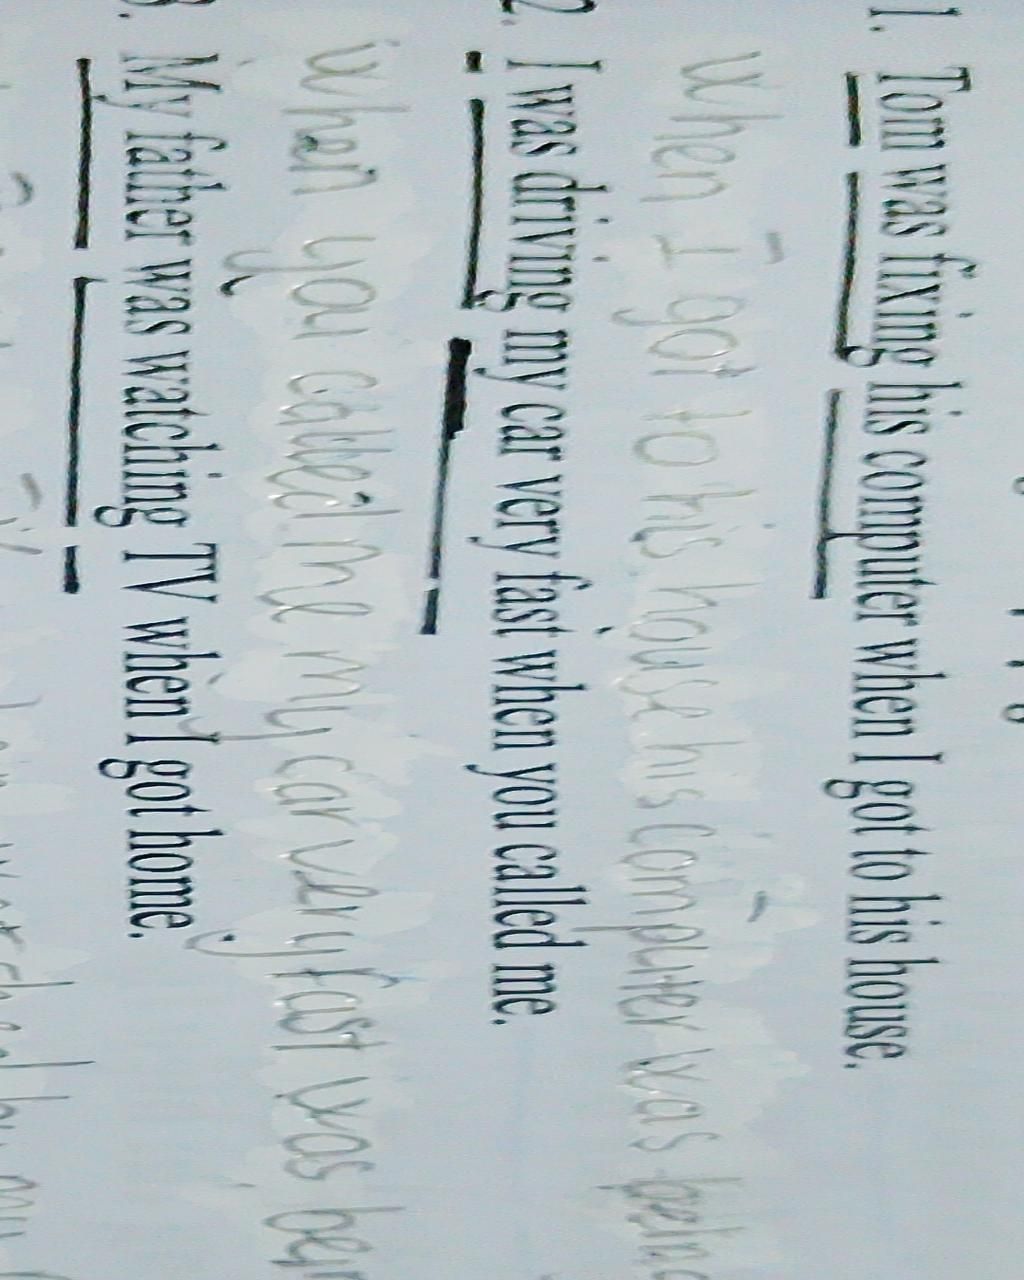 1. Tom was fixing his computer when I got to his house.
When I got to his house his computer was being
2. I was driving my car very fast when you called me.
When you called me my car very fast was
3. My father was watching TV when I got home.